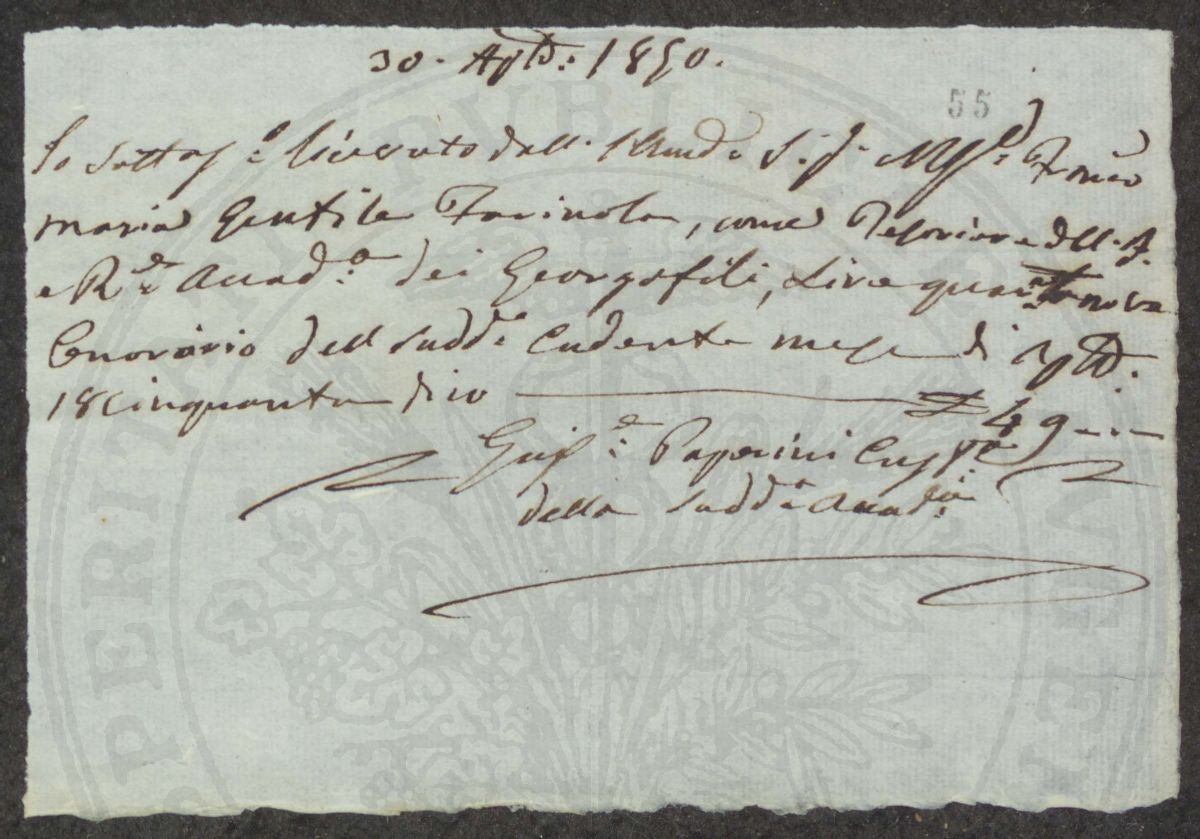 30. Agto. 1850.
55
Io Sottoso. Ricevuto dall. Illmo Sig. Franco
Maria Gentile Farinola, come Tesoriere dell. I.
e Re. Accada. dei Georgofili, Lire quarantanove
Onorario del sudde. Cadente mese di Agto.
18cinquanta dico £ 49 - - -
Guse. Paperini Cuspe
della Sudda Accada.
PUBLICAE
PROSPERITATI